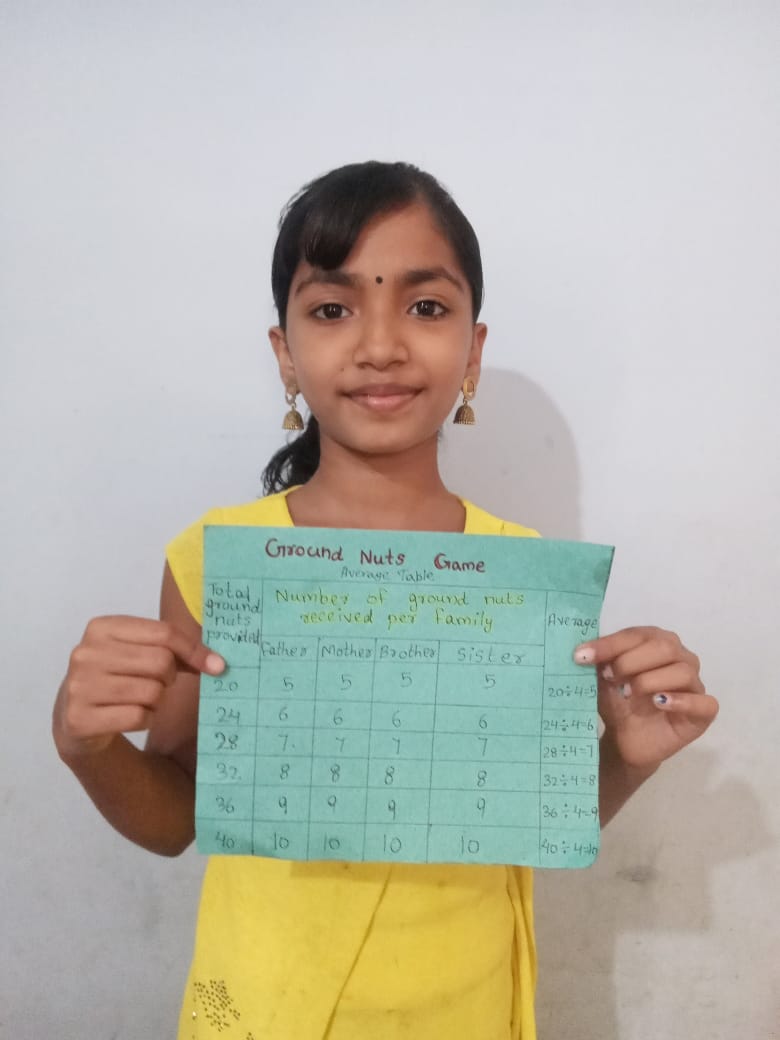 Ground Nuts Game
Average Table
Total ground nuts provided
Number of ground nuts
received per family
Average
Father Mother Brother Sister
20 5 5 5 5 20÷4=5
24 6 6 6 6 24÷4=6
28 7. 7 7 7 28÷4=7
32. 8 8 8 8 32÷4=8
36 9 9 9 9 36÷4=9
40 10 10 10 10 40÷4=10